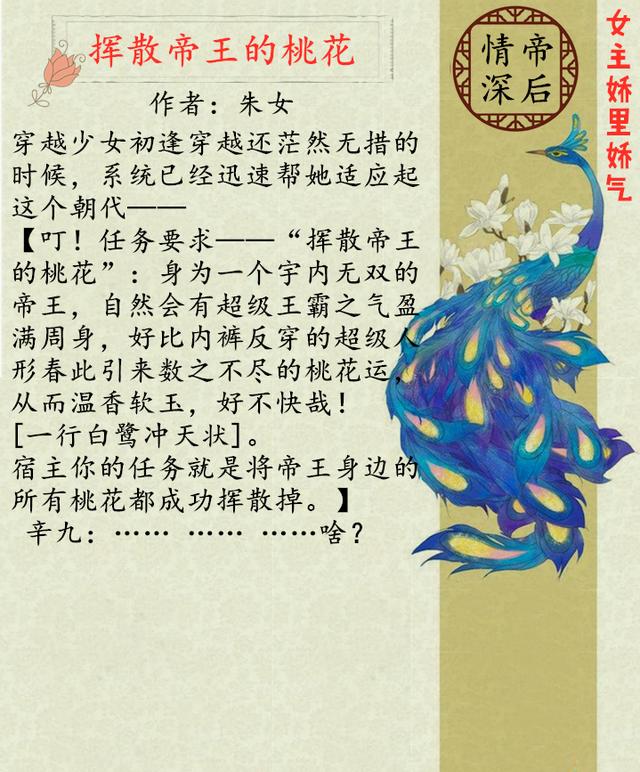 挥散帝王的桃花
作者：朱女
穿越少女初逢穿越还茫然无措的
时候，系统已经迅速帮她适应起
这个朝代——
【叮！任务要求——“挥散帝王
的桃花”：身为一个宇内无双的
帝王，自然会有超级王霸之气盈
满周身，好比内裤反穿的超级人
形春此引来数之不尽的桃花运，
从而温香软玉，好不快哉！
[一行白鹭冲天状]。
宿主你的任务就是将帝王身边的
所有桃花都成功挥散掉。】
辛九：…… …… ……啥？
情帝
深后
女主娇里娇气